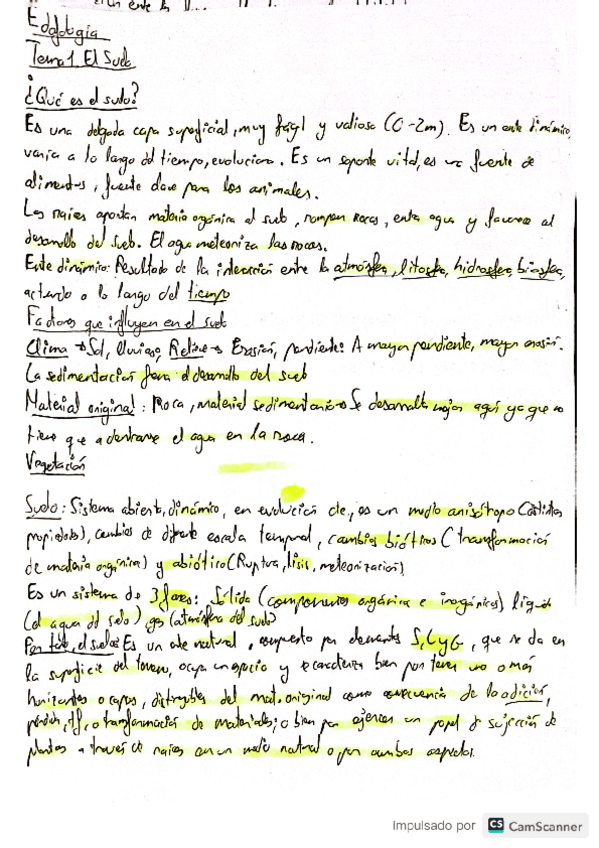 Edafología
Tema 1. El Suelo
¿Qué es el suelo?
Es una delgada capa superficial, muy frágil y valiosa (0-2m). Es un ente dinámico,
varia a lo largo del tiempo, evoluciona. Es un soporte vital, es una fuente de
alimentos, fuente clave para los animales.
Las raices aportan materia orgánica al suelo, rompen rocas, entra agua y favorece al
desarrollo del suelo. El agua meteoriza las rocas.
Ente dinámico: Resultado de la interacción entre la atmósfera, litosfera, hidrosfera, biosfera,
actuando a lo largo del tiempo
Factores que influyen en el suelo
Clima → Sol, lluvias, Relieve → Erosión, pendiente: A mayor pendiente, mayor erosión.
La sedimentación el desarrollo del suelo
Material original: Roca, material sedimentario Se desarrolla mejor aquí ya que no
tiene que adentrarse el agua en la roca.
Vegetación
Suelo: Sistema abierto, dinámico, en evolución es un medio anisótropo (distintas
propiedades), cambios de diferente escala temporal, cambios bióticos (transformación
de materia orgánica) y abiótico (Ruptura, lisis, meteorización)
Es un sistema de 3 fases: Sólida (componentes orgánica e inorgánicos) líquida
(el agua del suelo) gas (atmósfera del suelo)
Por tanto, el suelo: Es un ente natural, compuesto por elementos S, L y G, que se da en
la superficie del terreno, ocupa un espacio y se caracteriza bien por tener uno o más
horizontes o capas, distinguibles del mat. original como consecuencia de la adición,
pérdida, o transformación de materiales; o bien por ejercer un papel de sujeción de
plantas a través de raíces en un medio natural o por ambos aspectos.
Impulsado por CS CamScanner